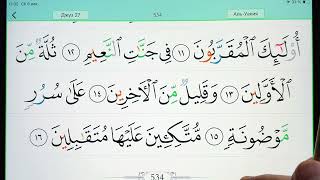 Джуз 27 534 Аль-Уакиа
أُو۟لَـٰٓئِكَ ٱلْمُقَرَّبُونَ ١١ فِى جَنَّـٰتِ ٱلنَّعِيمِ ١٢ ثُلَّةٌ مِّنَ
ٱلْأَوَّلِينَ ١٣ وَقَلِيلٌ مِّنَ ٱلْـَٔاخِرِينَ ١٤ عَلَىٰ سُرُرٍ
مَّوْضُونَةٍ ١٥ مُّتَّكِـِٔينَ عَلَيْهَا مُتَقَـٰبِلِينَ ١٦
534